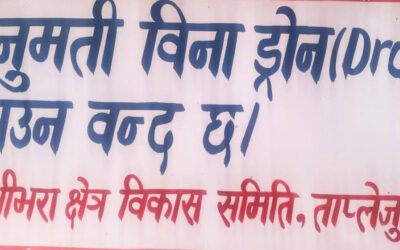 नुमती विना ड्रोन(Dro
उन वन्द छ।
भिरा क्षेत्र विकास समिति, ताप्लेजु